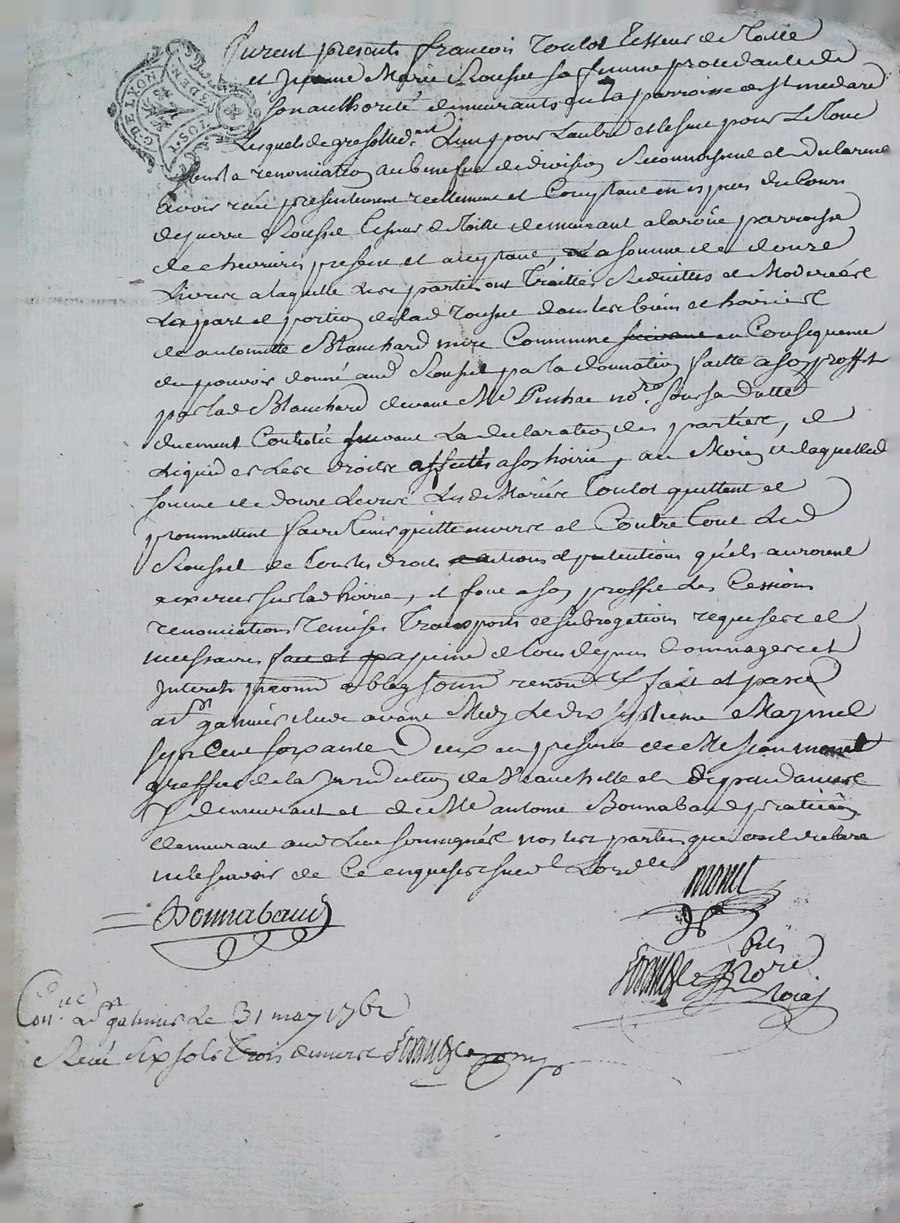 G. DE LYON
Furent presents françois Toulot Tisseur de Toille
et Jeanne Marie Roussel sa femme procedante de
son authorité demeurants en la parroisse de st medard
Lesquels de gré sollidrnt Lun pour Lautre et le seul pour Le Tout
sous la renonciation au benefice de division Reconnoissent et Declarent
avoir reçu presentement reellement et Comptant en especes du Cours
de pierre Roussel Tisseur de Toille demeurant a parroisse
de chevrieres present et acceptant, La somme de douze
Livres a laquelle Les parties ont Traittés Reduittes et Moderées
La part et portion de lad Roussel dans les biens et hoirie
de antoinette Blanchard mere Commune suivant en Consequence
du pouvoir donné aud Roussel par la donnation faitte a son proffit
par lad Blanchard devant Me no.re sous sa datte
duement Controlé suivant La declaration des parties, et
Liquid er Les droits affectés a son hoirie, au Moien de laquelled
somme de douze Livres Les d Mariés Toulot quittent et
promettent faire Tenir quitte envers et Contre Tous Led
Roussel de Tous les droits actions et pretentions qu'ils auroient
a exercer sur lad hoirie, et font a son proffit Les Cessions
renonciations remises Transports et subrogations requises et
necessaires fait et p a peine de tous depens dommages et
Interets promis oblig soum renon & fait et passé
a st galmier étude avant Midy Le dix septieme May mil
sept Cent soixante Deux en presence de Me Jean monet
greffier de la Jurisdiction de et dependances
y demeurant et de Me antoine Bonnabaud praticien
demeurant aud Lieu soussignés non les parties qui ont declaré
ne le scavoir de Ce enquises suivt Lord.ce
monet
Bonnabaud
Con.lé a st galmier Le 31 may 1762
Reçu six sols Trois deniers